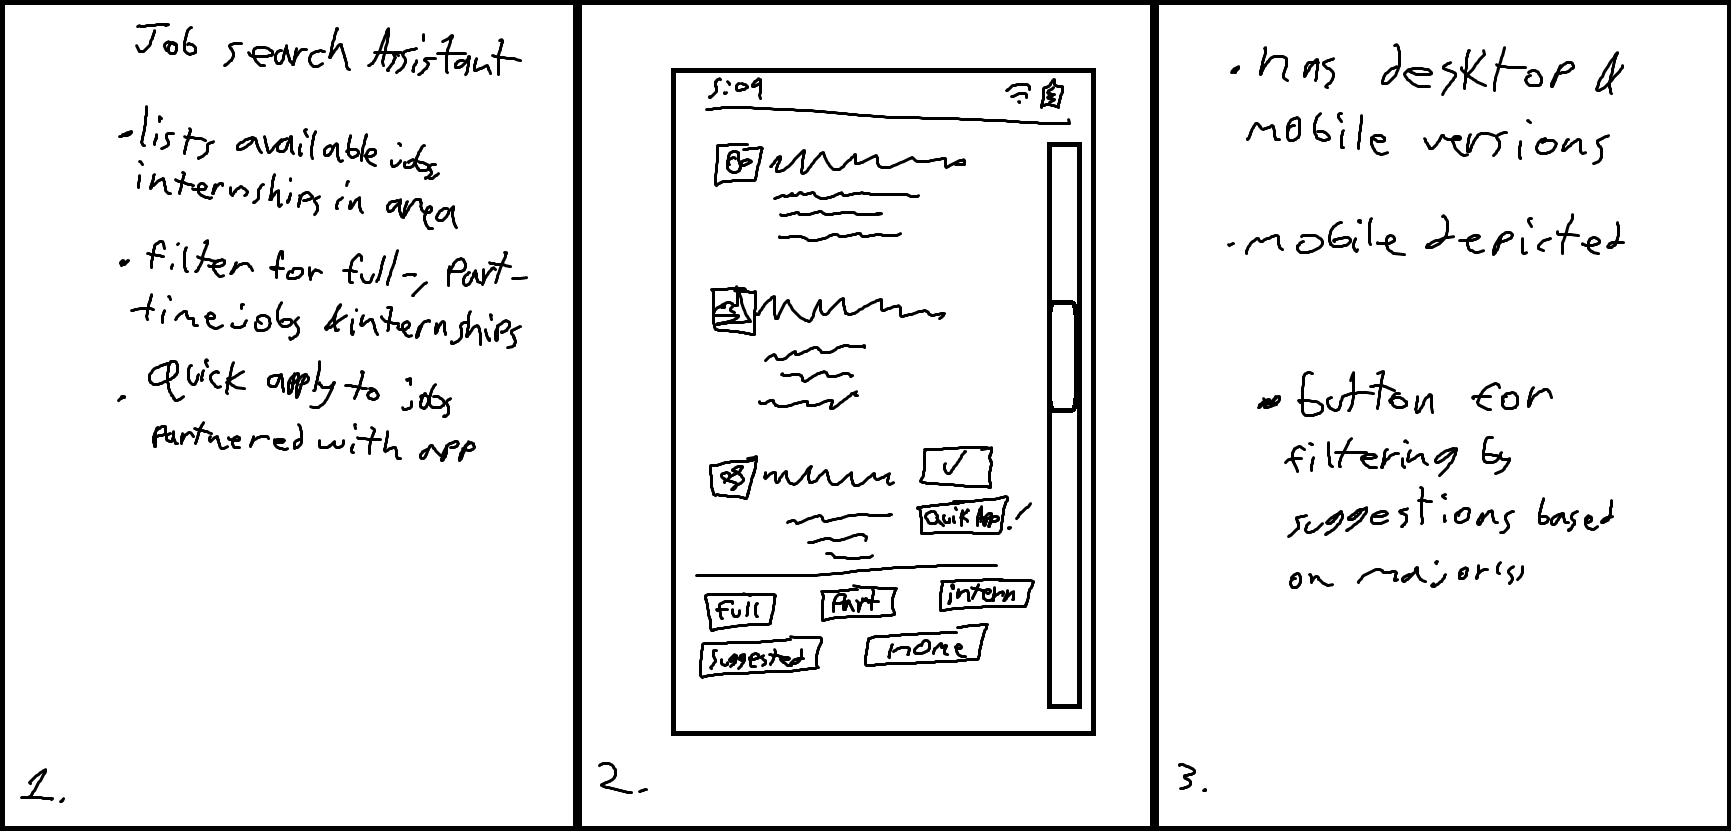 Job search Assistant
• lists available jobs,
internships in area
• filter for full-, Part-
time jobs & internships
• Quick apply to jobs
Partnered with app
1.
5:09
✓
Quik App!
Full
Part
intern
Suggested
home
2.
• has desktop &
mobile versions
• mobile depicted
• button for
filtering by
suggestions based
on major(s)
3.